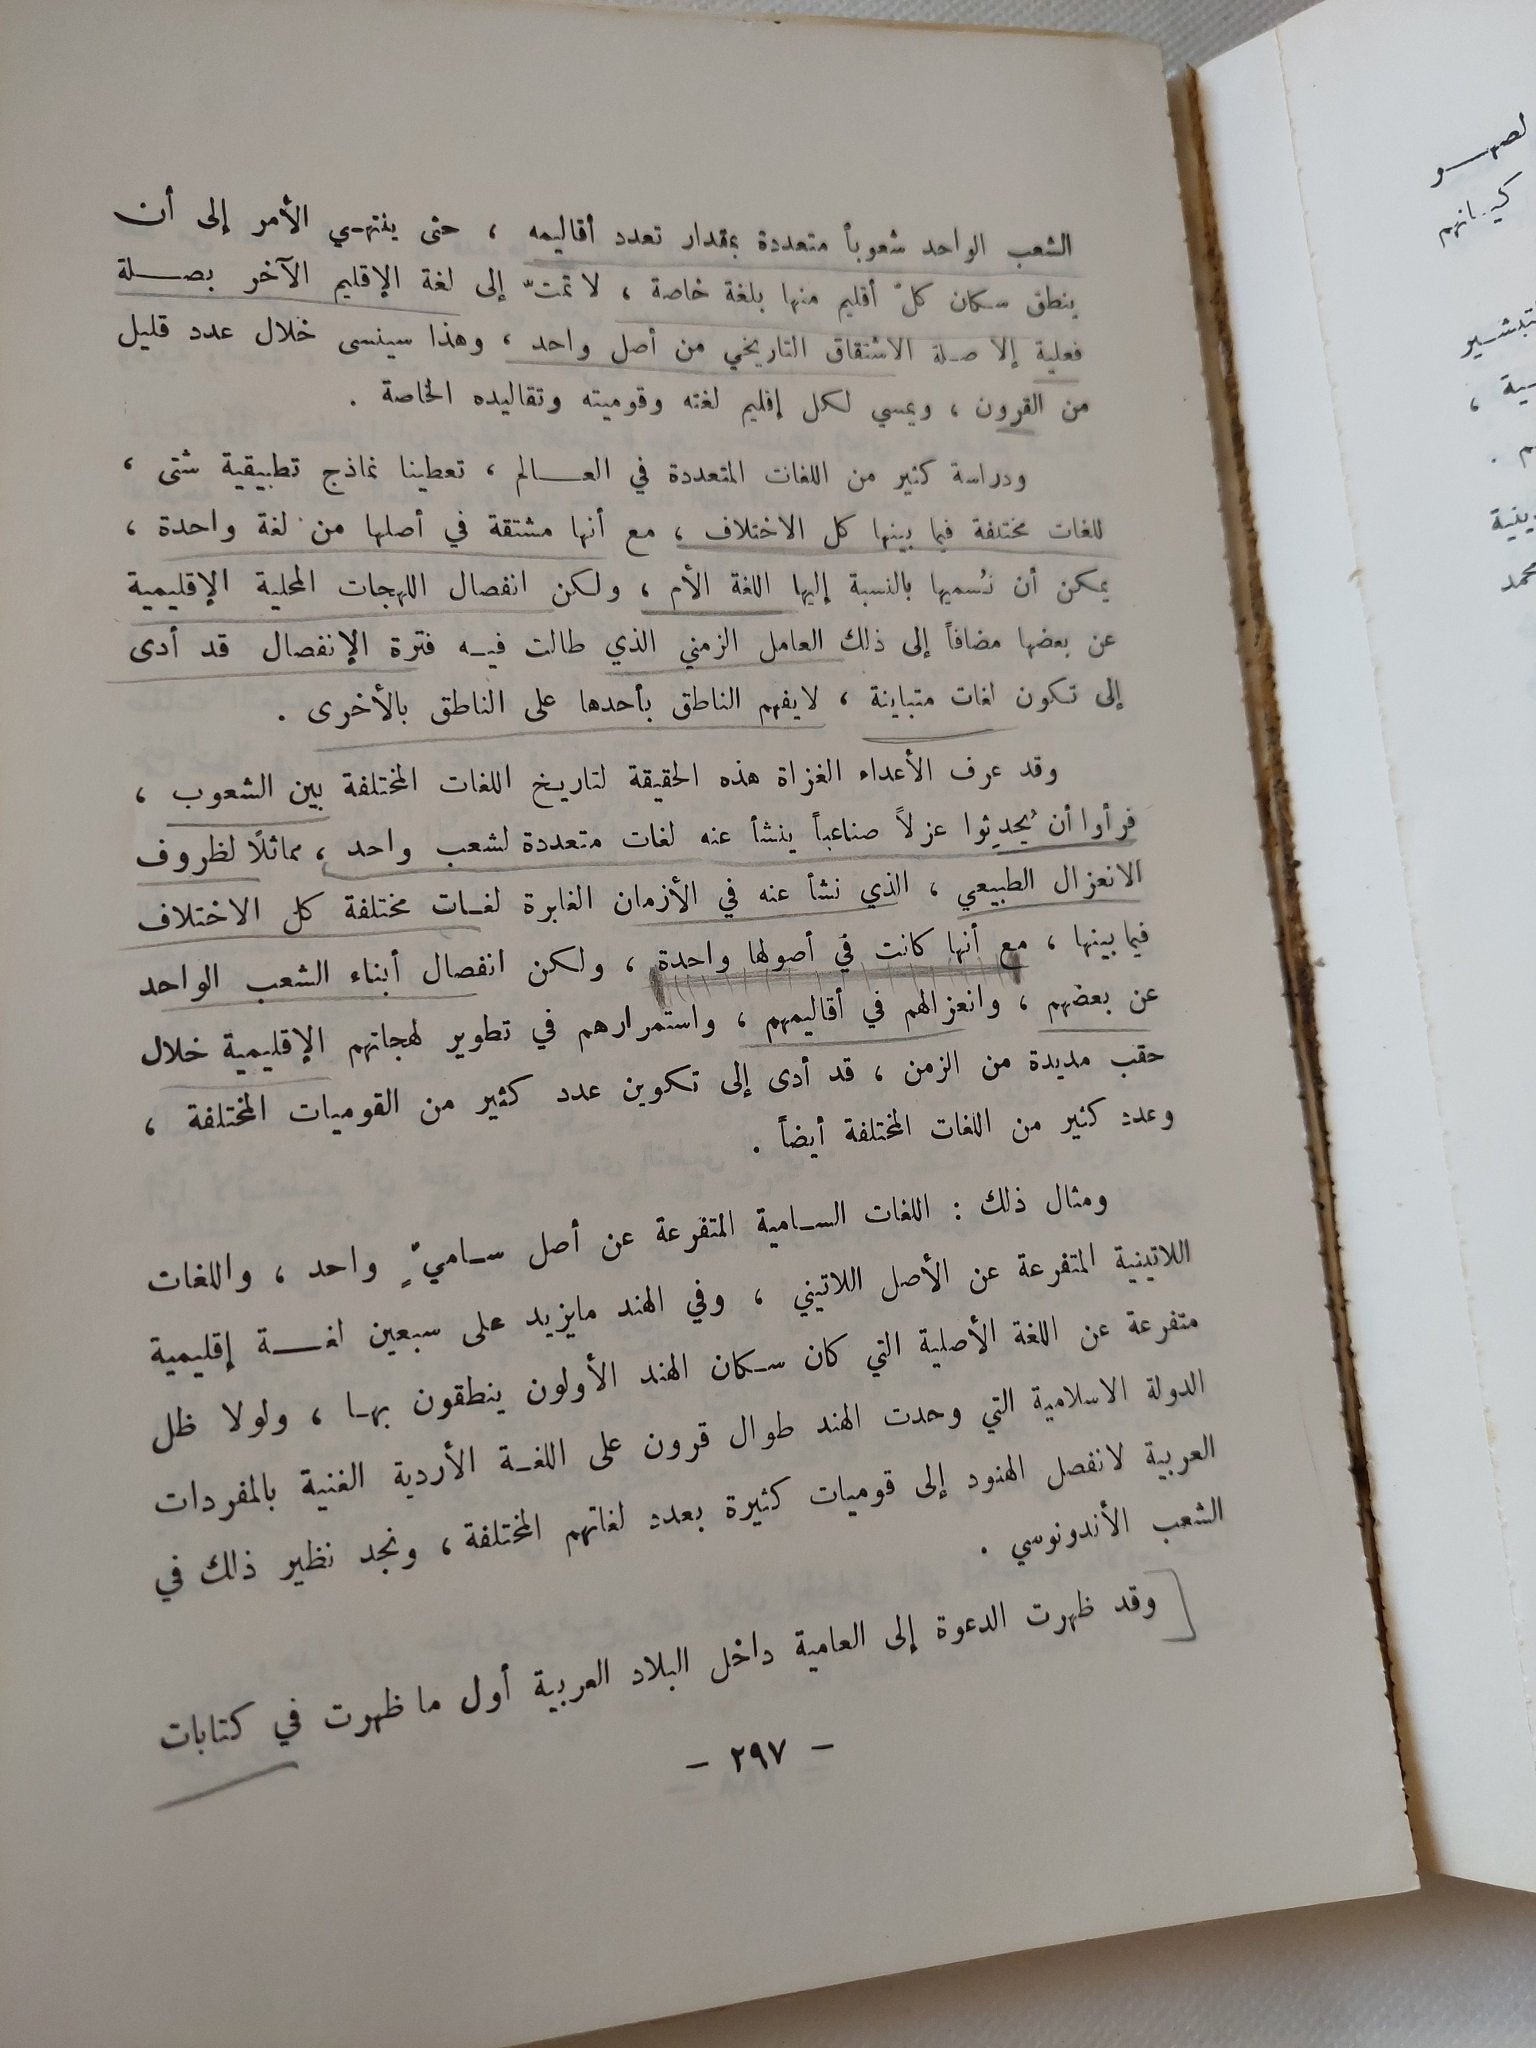 الشعب الواحد شعوباً متعددة بمقدار تعدد أقاليمه ، حتى ينتهي الأمر إلى أن
ينطق سكان كلّ أقليم منها بلغة خاصة ، لا تمتّ إلى لغة الإقليم الآخر بصلة
فعلية إلا صلة الاشتقاق التاريخي من أصل واحد ، وهذا سينسى خلال عدد قليل
من القرون ، ويمسي لكل إقليم لغته وقوميته وتقاليده الخاصة .
ودراسة كثير من اللغات المتعددة في العالم ، تعطينا نماذج تطبيقية شتى ،
للغات مختلفة فيما بينها كل الاختلاف ، مع أنها مشتقة في أصلها من لغة واحدة ،
يمكن أن نُسميها بالنسبة إليها اللغة الأم ، ولكن انفصال اللهجات المحلية الإقليمية
عن بعضها مضافاً إلى ذلك العامل الزمني الذي طالت فيه فترة الإنفصال قد أدى
إلى تكون لغات متباينة ، لايفهم الناطق بأحدها على الناطق بالأخرى .
وقد عرف الأعداء الغزاة هذه الحقيقة لتاريخ اللغات المختلفة بين الشعوب ،
فرأوا أن يُحدِثوا عزلاً صناعياً ينشأ عنه لغات متعددة لشعب واحد ، مماثلًا لظروف
الانعزال الطبيعي ، الذي نشأ عنه في الأزمان الغابرة لغات مختلفة كل الاختلاف
فيما بينها ، مع أنها كانت في أصولها واحدة ، ولكن انفصال أبناء الشعب الواحد
عن بعضهم ، وانعزالهم في أقاليمهم ، واستمرارهم في تطوير لهجاتهم الإقليمية خلال
حقب مديدة من الزمن ، قد أدى إلى تكوين عدد كثير من القوميات المختلفة ،
وعدد كثير من اللغات المختلفة أيضاً .
ومثال ذلك : اللغات السامية المتفرعة عن أصل ساميٍّ واحد ، واللغات
اللاتينية المتفرعة عن الأصل اللاتيني ، وفي الهند مايزيد على سبعين لغة إقليمية
متفرعة عن اللغة الأصلية التي كان سكان الهند الأولون ينطقون بها ، ولولا ظل
الدولة الاسلامية التي وحدت الهند طوال قرون على اللغة الأردية الغنية بالمفردات
العربية لانفصل الهنود إلى قوميات كثيرة بعدد لغاتهم المختلفة ، ونجد نظير ذلك في
الشعب الأندونوسي .
وقد ظهرت الدعوة إلى العامية داخل البلاد العربية أول ما ظهرت في كتابات
- ٢٩٧ -
كيانهم